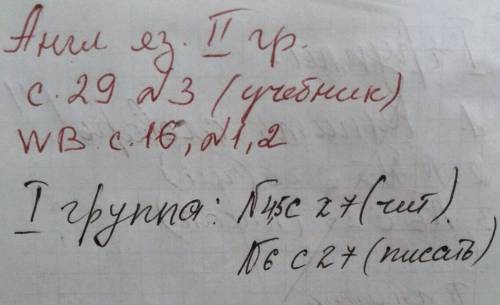 Англ яз. II гр.
с. 29 №3 (учебник)
WB с.16, №1,2
I группа: №4,5 с 27 (чит).
№6 с 27 (писать)